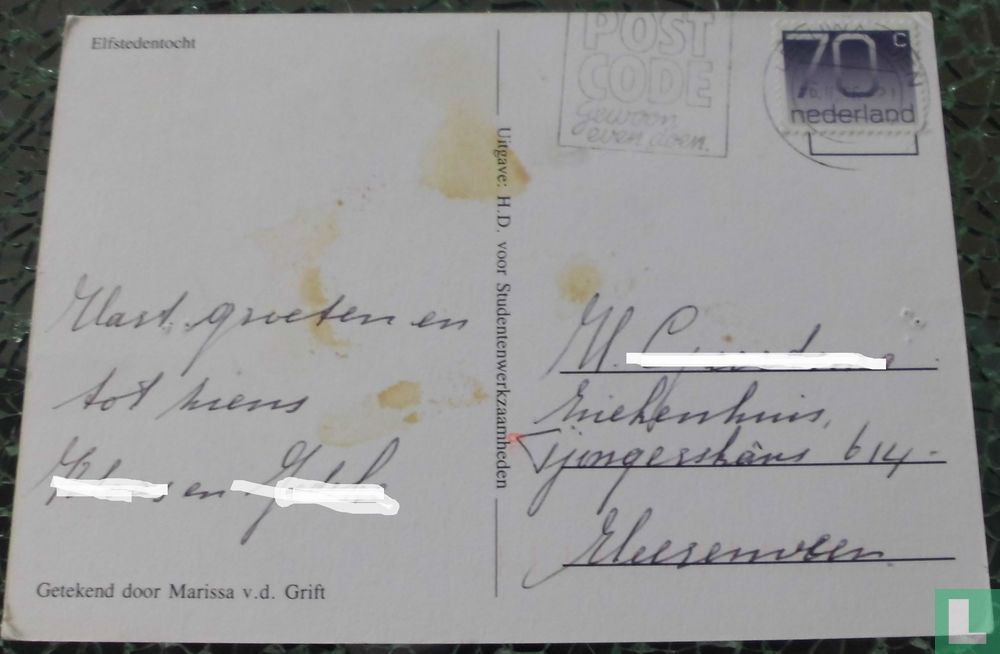 Elfstedentocht
Hart. groeten en
tot ziens
en
Getekend door Marissa v.d. Grift
Uitgave: H.D. voor Studentenwerkzaamheden
POST
CODE
gewoon
even doen.
70 c
nederland
Ziekenhuis,
Tjongerschâns 614.
Heerenveen
L